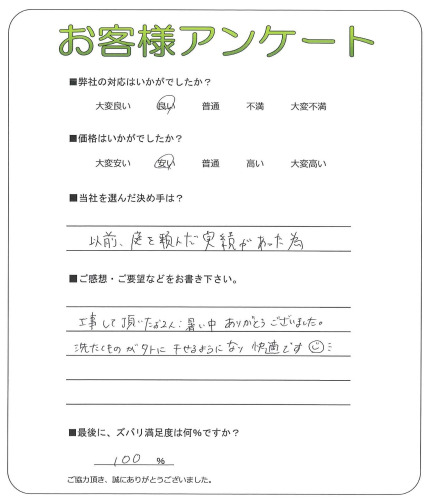 お客様アンケート
■弊社の対応はいかがでしたか?
大変良い 良い 普通 不満 大変不満
■価格はいかがでしたか?
大変安い 安い 普通 高い 大変高い
■当社を選んだ決め手は?
以前、庭を頼んだ実績があった為
■ご感想・ご要望などをお書き下さい。
工事して頂いたお2人:暑い中 ありがとうございました。
洗たくものが外に干せるようになり 快適です
■最後に、ズバリ満足度は何%ですか?
100 %
ご協力頂き、誠にありがとうございました。